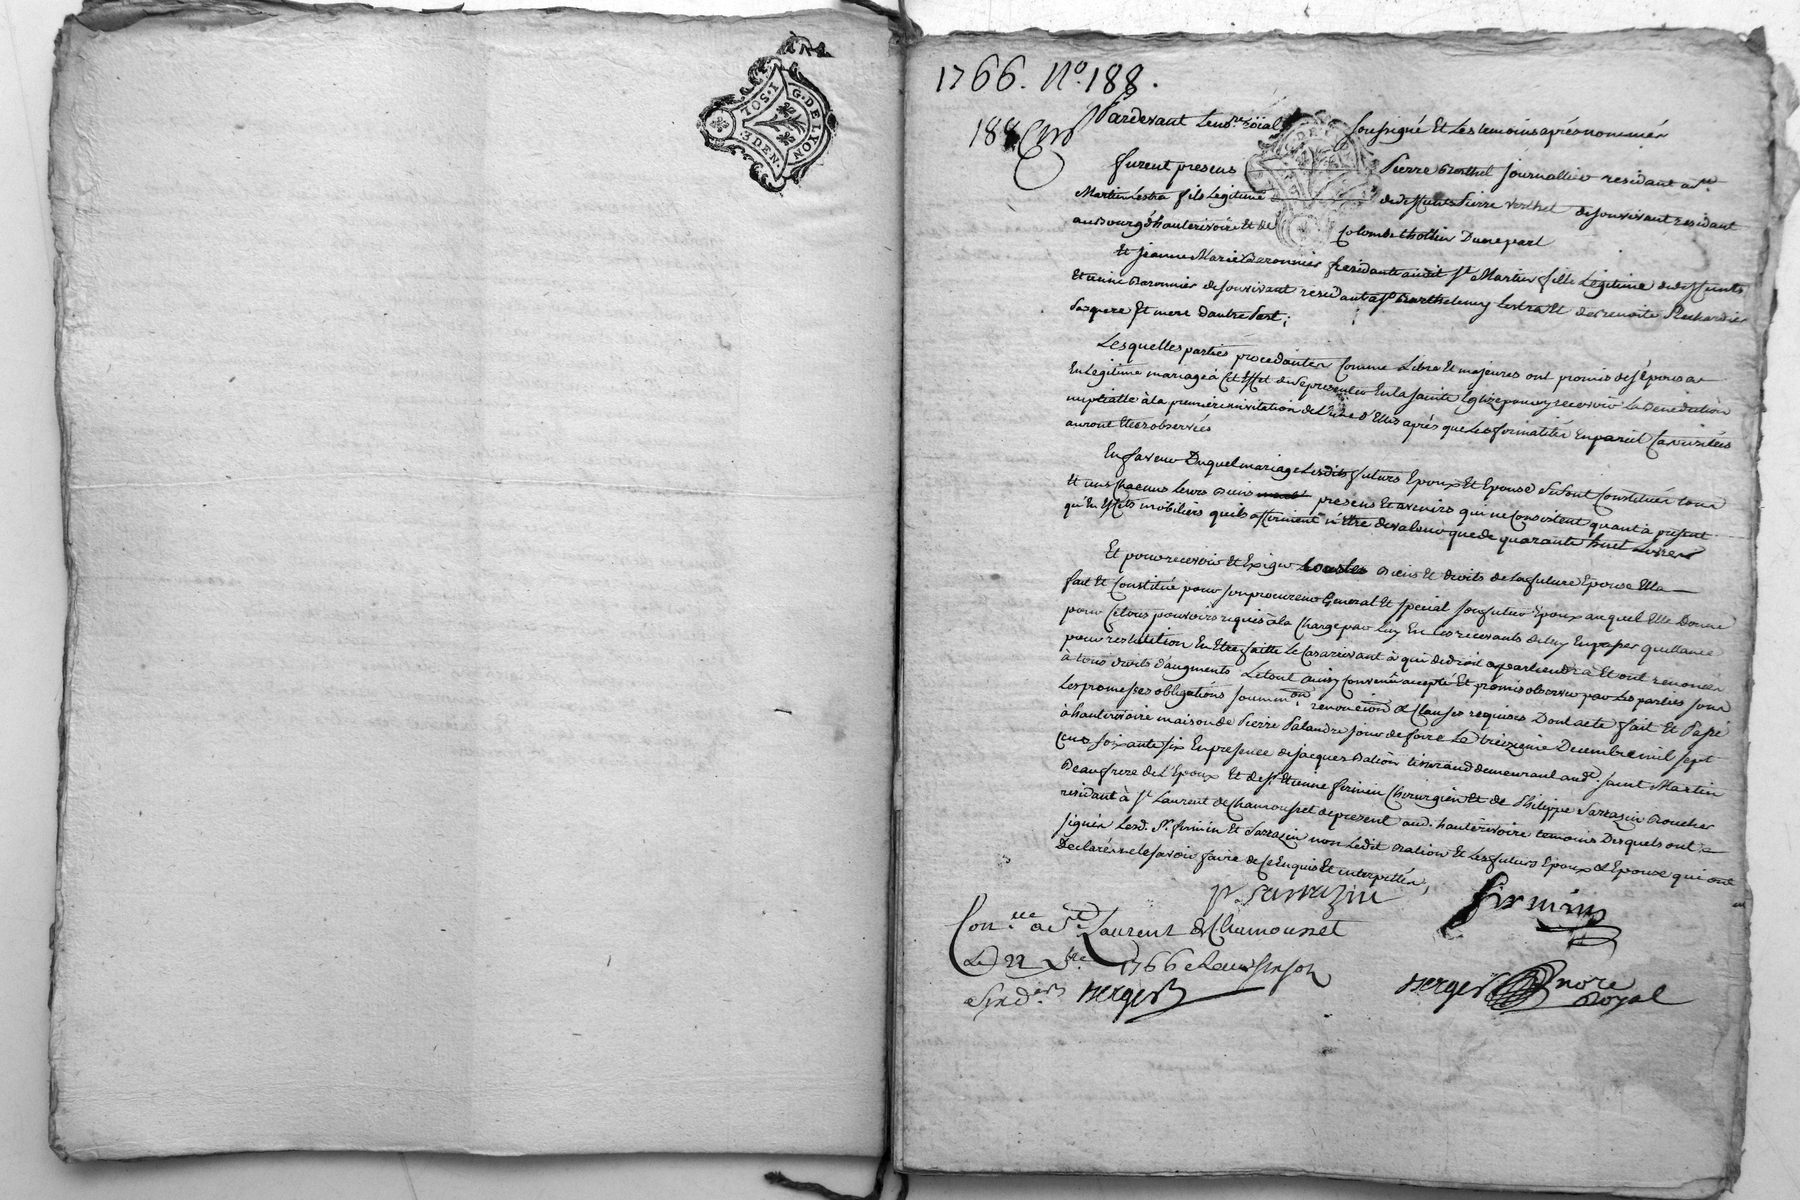 G. DE LYON
1. SOL
3. DEN.
1766. No. 188.
188 Cm
Pardevant le no.re Roïal soussigné Et Les temoins aprés nommés
furent presens Pierre Berthet Journallier residant a St
Martin Lestra fils Legitime de deffunts Pierre Berthet de son vivant residant
au Bourg d'hauterivoire et de Colombe thollin D'une part
Et Jeanne Marie Baronnier residante audit St Martin fille Legitime de deffunts
Etienne Baronnier de son vivant residant a St Barthelemy Lestra Et de Benoite
Ses pere Et mere D'autre Part;
Lesquelles parties procedantes Comme Libres Et majeures ont promis de s'épouser
En Legitime mariage à Cet Effet de se presenter En la sainte Eglize pour y recevoir La Benediction
nuptialle à la premiere invitation de L'une D'Elles aprés que Les formalités En pareil Cas
auront Etées observées
En faveur Duquel mariage Lesdits futurs Epoux Et Epouse se sont Constitués tous
Et uns Chacuns Leurs Biens presens Et avenirs qui ne Consistent quant à present
qu'En Effets mobiliers qu'ils afferment n'Etre de valeur que de quarante huit Livres
Et pour recevoir Et Exiger Biens Et droits de la future Epouse Elle
fait Et Constitue pour son procureur General Et special son futur Epoux auquel Elle Donne
pour Ce tous pouvoirs requis à la Charge par Luy En Les recevants de luy En passer quittance
pour restitution En Etre faitte Le Cas arrivant à qui de droit apartiendra Et ont renoncés
à tous droits d'augments Le tout ainsy Convenu accepté Et promis observer par Les parties sous
Les promesses obligations soumm.on renoncion & Clauses requises Dont acte fait Et Passé
à hauterivoire maison de Pierre Palandre jour de foire Le treizieme Decembre mil sept
Cens soixante six En presence de jacques Bation tisserand demeurant aud. saint Martin
Beaufrere de L'Epoux Et de Sr Etienne firmin Chirurgien Et de Philippe Sarrazin Boucher
residant à St Laurent de Chamousset de present aud. hauterivoire temoins Desquels ont
signés Lesd. Sr firmin Et Sarrazin non Ledit Bation Et Les futurs Epoux & Epouse qui ont
Declarés ne le savoir faire de ce Enquis Et interpellés,
p. sarrazin
firmin
Con.llé a St Laurent de Chamousset
Le 22 Xbre 1766
six d.ers Berger
Berger nore
Royal